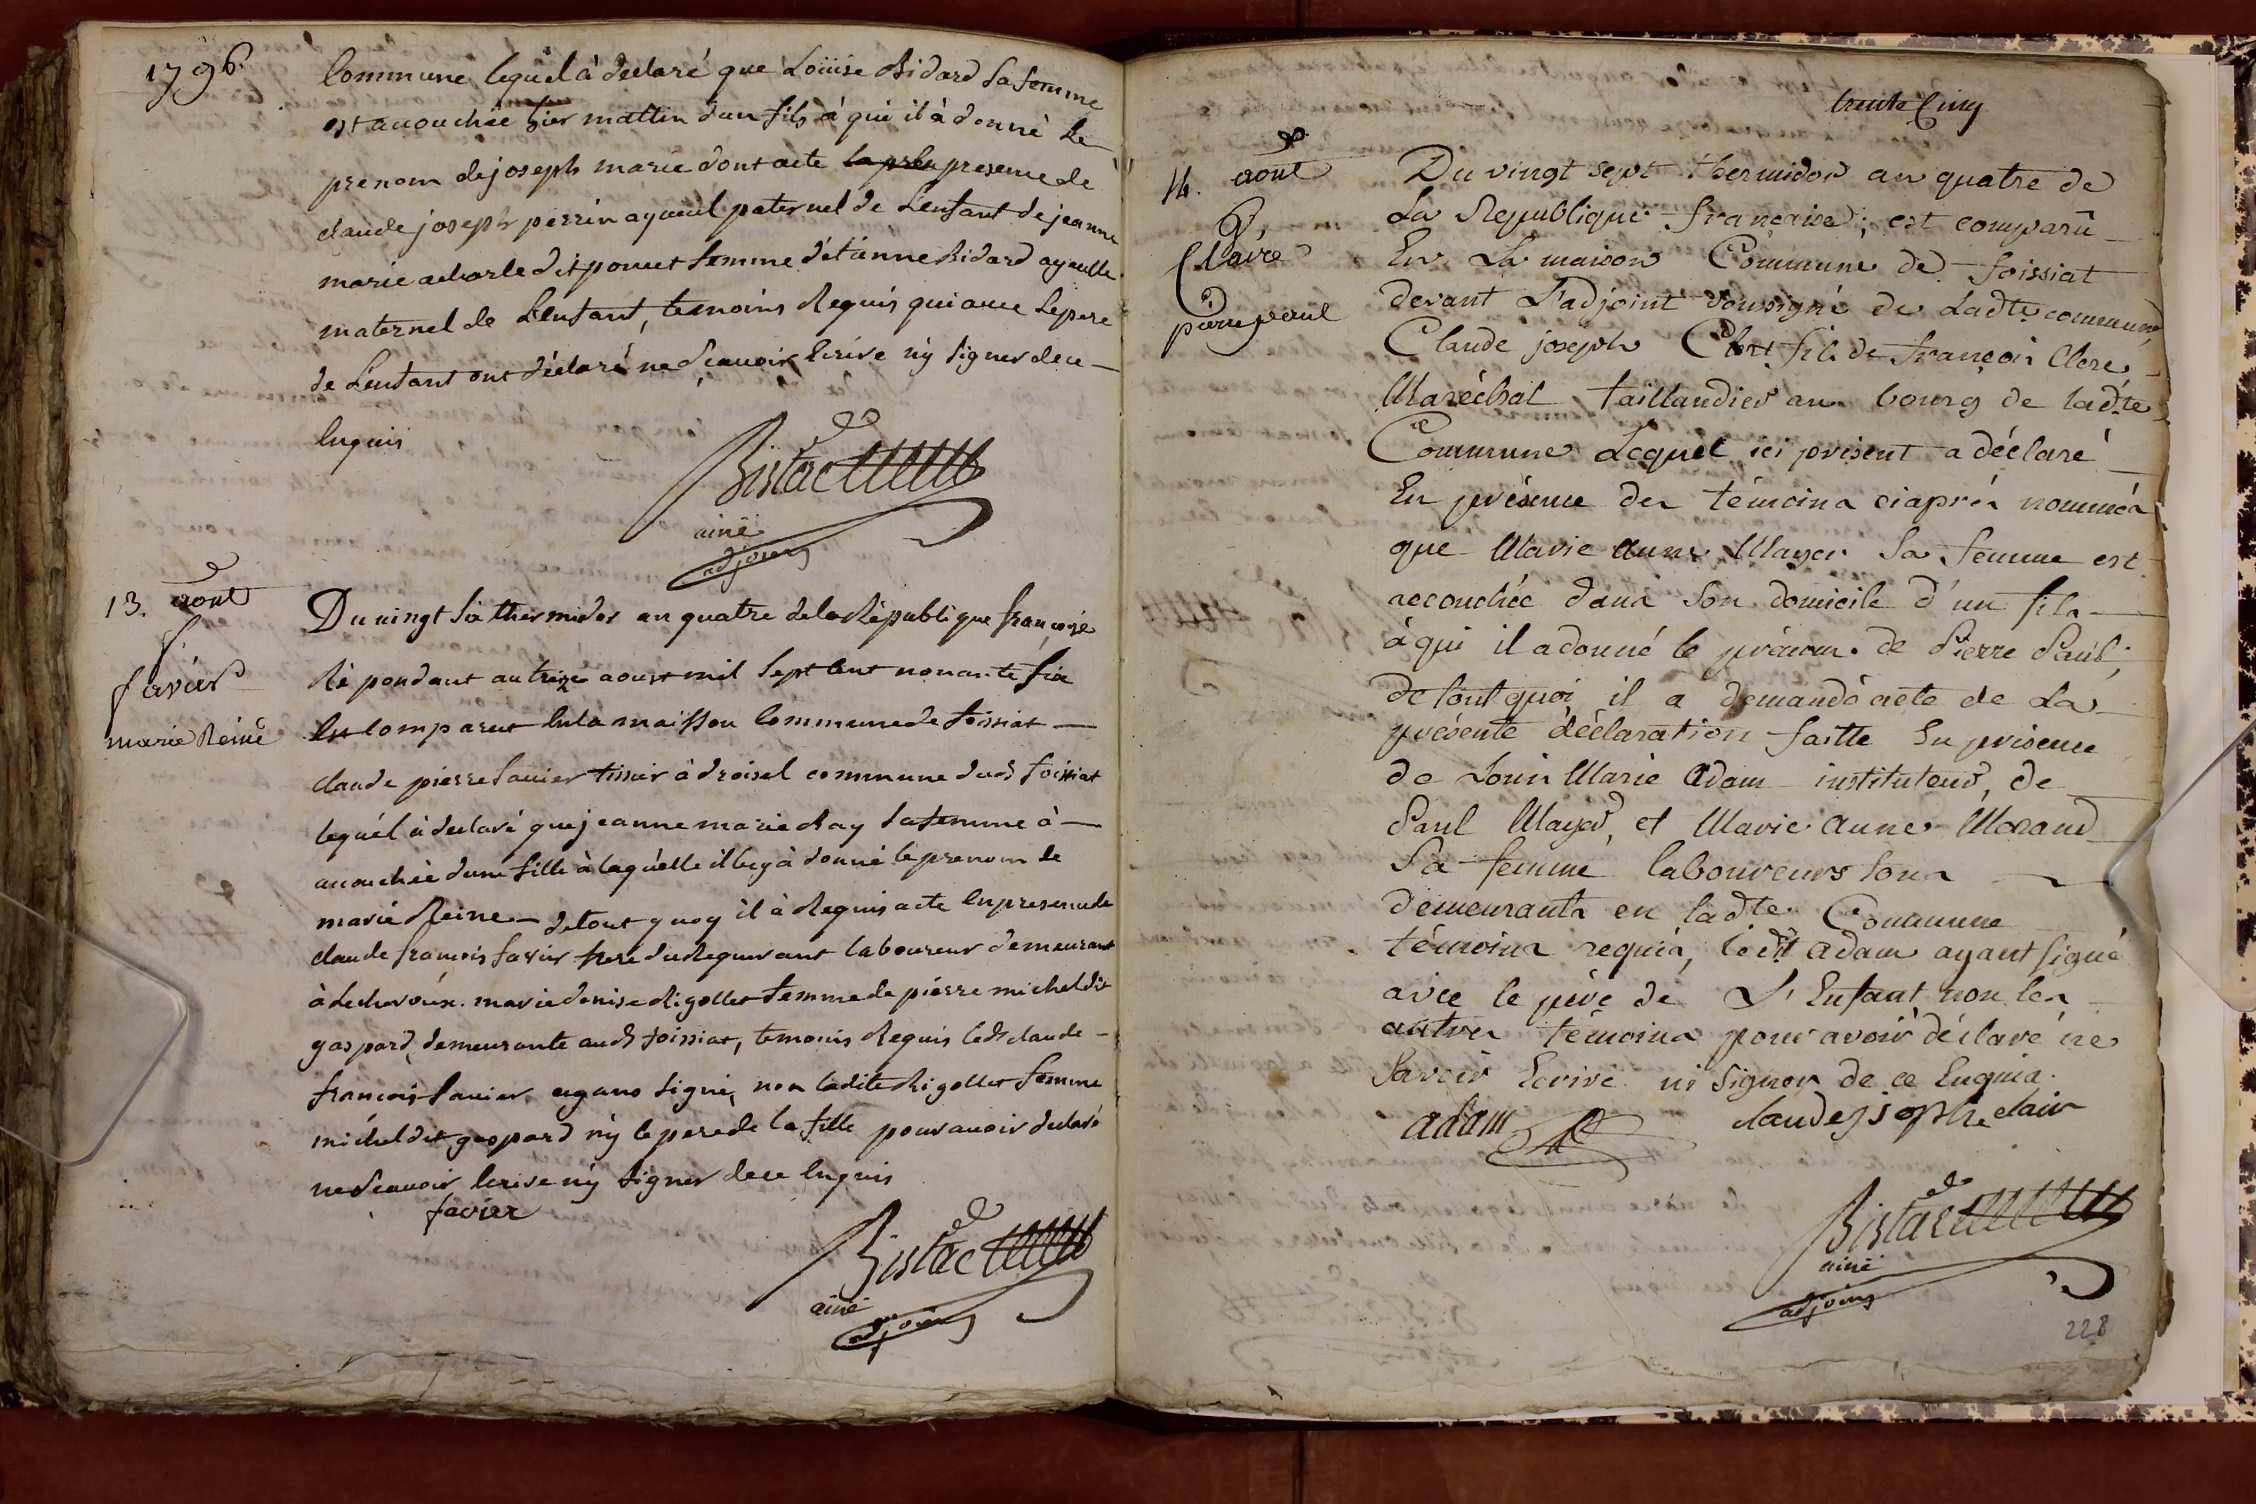 1796.
Commune lequel à declaré que Loüise Ridard sa femme
est acouchée hier mattin dun fils à qui il à donné le
prenom de joseph marie dont acte la pres presence de
claude joseph perrin ayeuul paternel de L'enfant de jeanne
marie dit femme d'étienne Ridard ayeulle
maternel de L'enfant, temoins Requis qui avec le pere
de L'enfant ont déclaré ne scavoir Ecrire n'y signer de ce
Enquis
Bistac
ainé
adjoint
13. aout
favier
marie Reine
Du vingt six thermidor an quatre de la Republique françoise
Répondant au treize aoust mil sept cent nonante six
Est comparut En la maisson Commune de foissiat
claude pierre favier tissier à droisel commune dud foissiat
lequél à declaré que jeanne marie Ray sa femme à
acouchée dune fille à laquélle il luy à donné le prenom de
marie Reine de tout quoy il à Requis acte En presence de
claude françois favier frere du Requerant laboureur demeurant
à marie denise Rigollet femme de piérre michel dit
gaspard, demeurante aud foissiat, temoins Requis led claude
françois favier ayant signé, non ladite Rigollet femme
michel dit gaspard n'y le pere de la fille pour avoir declaré
ne scavoir Ecrire n'y signer de ce Enquis
favier
Bistac
ainé
adjoint
trente Cinq
14. aout
Claire
pierre paul
Du vingt sept thermidor an quatre de
La Republique française, est comparû
En La maison Commune de foissiat
devant L'adjoint soussigné de Ladte commune,
Claude joseph Clert fils de françois Clere
Maréchal taillandier au bourg de ladte
Commune Lequel ici présent a déclaré
En présence des témoins ciaprés nommés
que Marie Anne Mayer Sa femme est
accouchée dans Son domicile d'un fils
à qui il a donné le prénom de Pierre Paul;
de tout quoi il a demandé acte de La
présente déclaration faitte En présence
de Louis Marie Adam instituteur, de
Paul Mayer, et Marie Anne Morand
Sa femme laboureurs tous
demeurants en ladte Commune
témoins requis, ledt Adam ayant Signé
avec le père de L'Enfant non les
autres témoins pour avoir déclaré ne
Savoir Ecrire ni Signer de ce Enquis.
adam
claude joseph clair
Bistac
ainé
adjoint
228